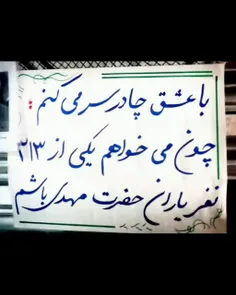 با عشق چادر سر می کنم :
چون می خواهم یکی از ۳۱۳
نفر یاران حضرت مهدی باشم